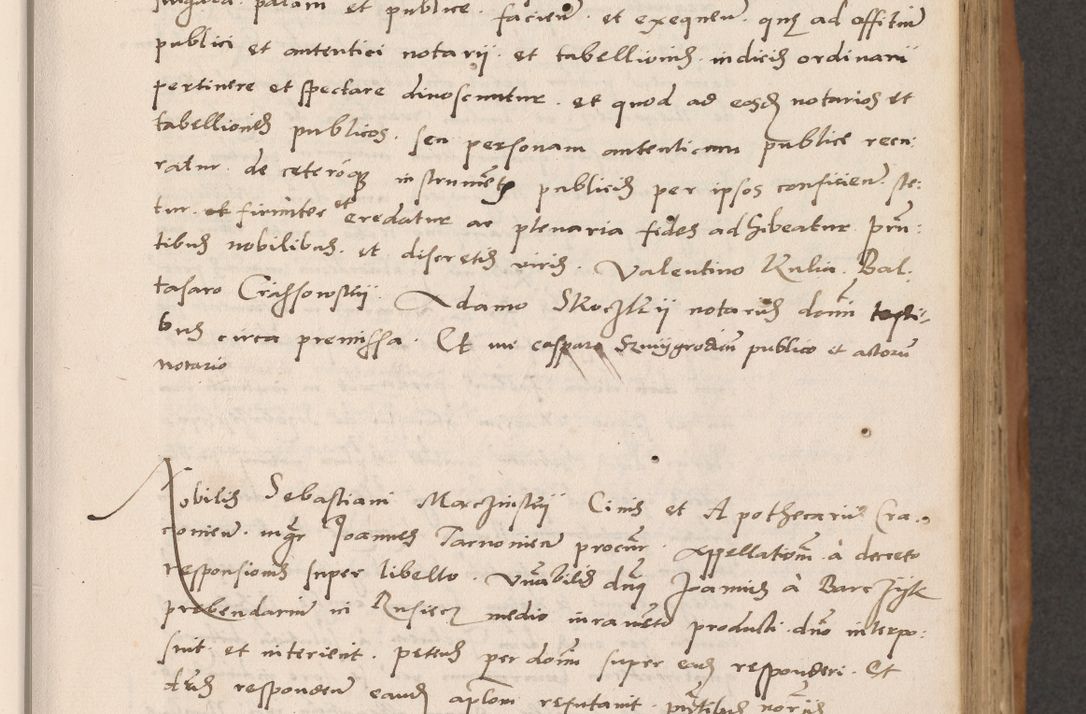 singula palam et publice facien et exequen que ad offitiu
publici et autentici notarii et tabellionis iudicis ordinarii
pertinere et spectare dinoscuntur et quod ad eosdem notarios et
tabelliones publicos seu personam autenticam publice
de ceterosque instrumentis publicis per ipsos conficien ste:
tur et firmiter et credatur ac plenaria fides adhibeatur prn:
tibus nobilibus et discretis viris Valentino Kulia Bal.
tasaro Crassowskij Adamo Skoczkij notariis domi testi-
bus circa premissa Et me caspare Szmijgrodien publico et actoru
notario
Nobilis Sebastiani Marczinskij Civis et Apothecarius Cra.
conien mgr Joannes Tarnonien procur Appellationem à decreto
responsionis super libello vnabilis dni Joannis à Barczijk
prebendarium in Rusiecz medio iuramento producti dno interpo:
suit et interient petens per dominum super eas responderi Et
dns responden eandem aplom refutavit pntibus